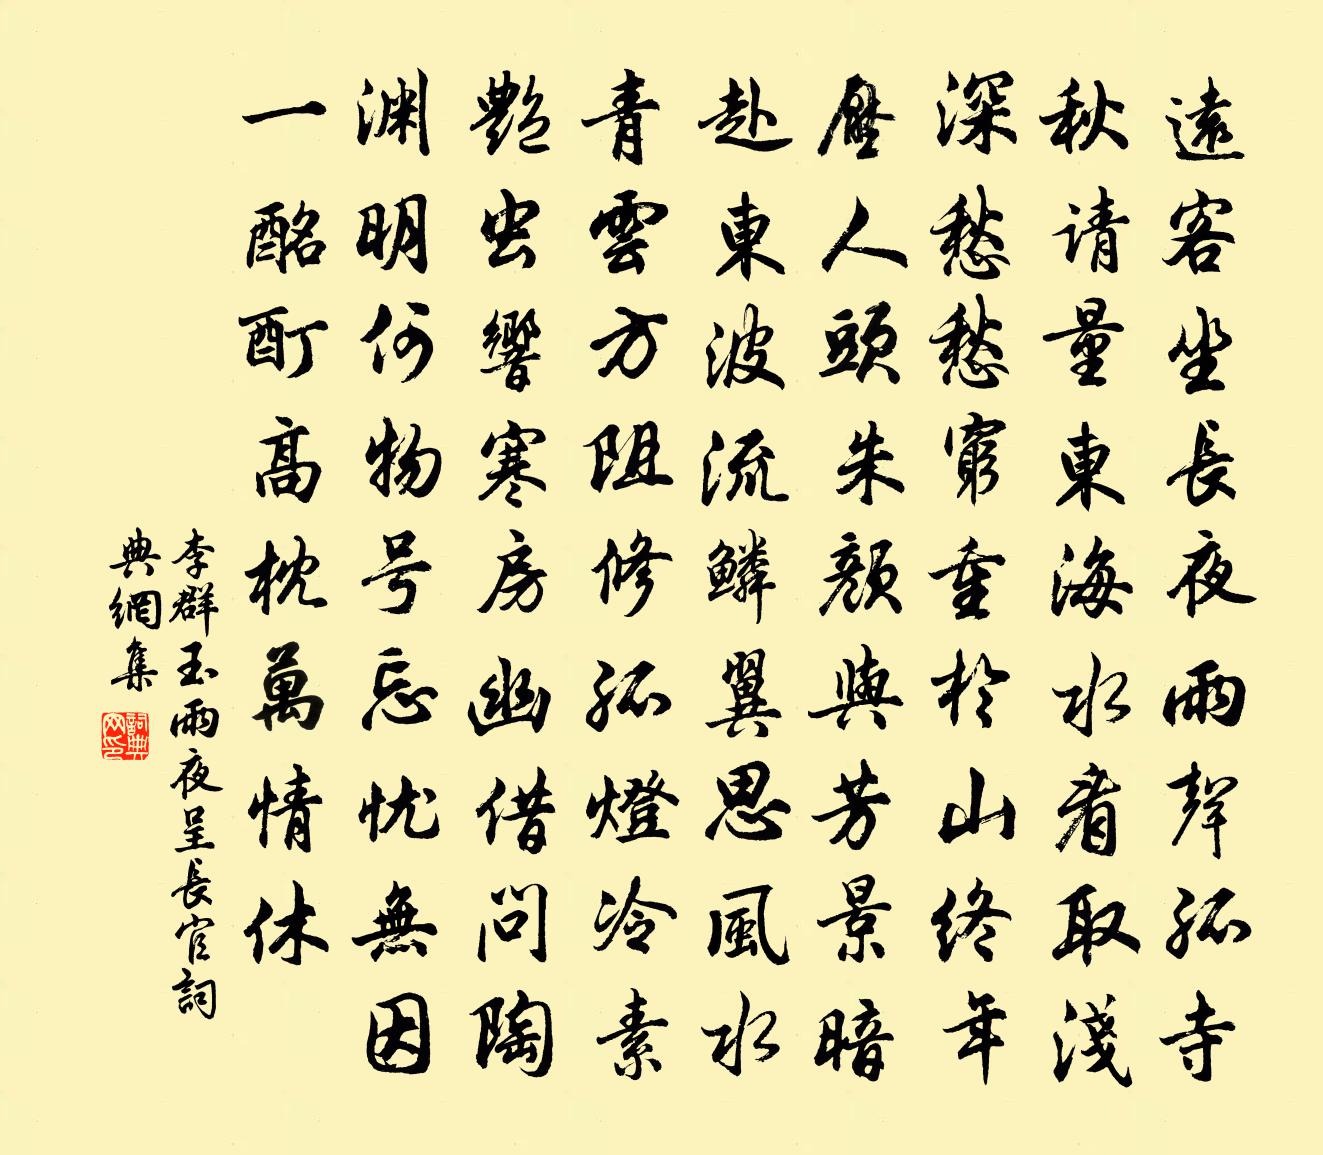 遠客坐長夜雨聲孤寺
秋请量東海水看取淺
深愁愁窮重於山终年
壓人頭朱顏與芳景暗
赴東波流鱗翼思風水
青雲方阻修孤燈冷素
艷虫響寒房幽借問陶
渊明何物号忘忧無因
一酩酊高枕萬情休
李群玉雨夜呈長官詞
典網集
詞典网印